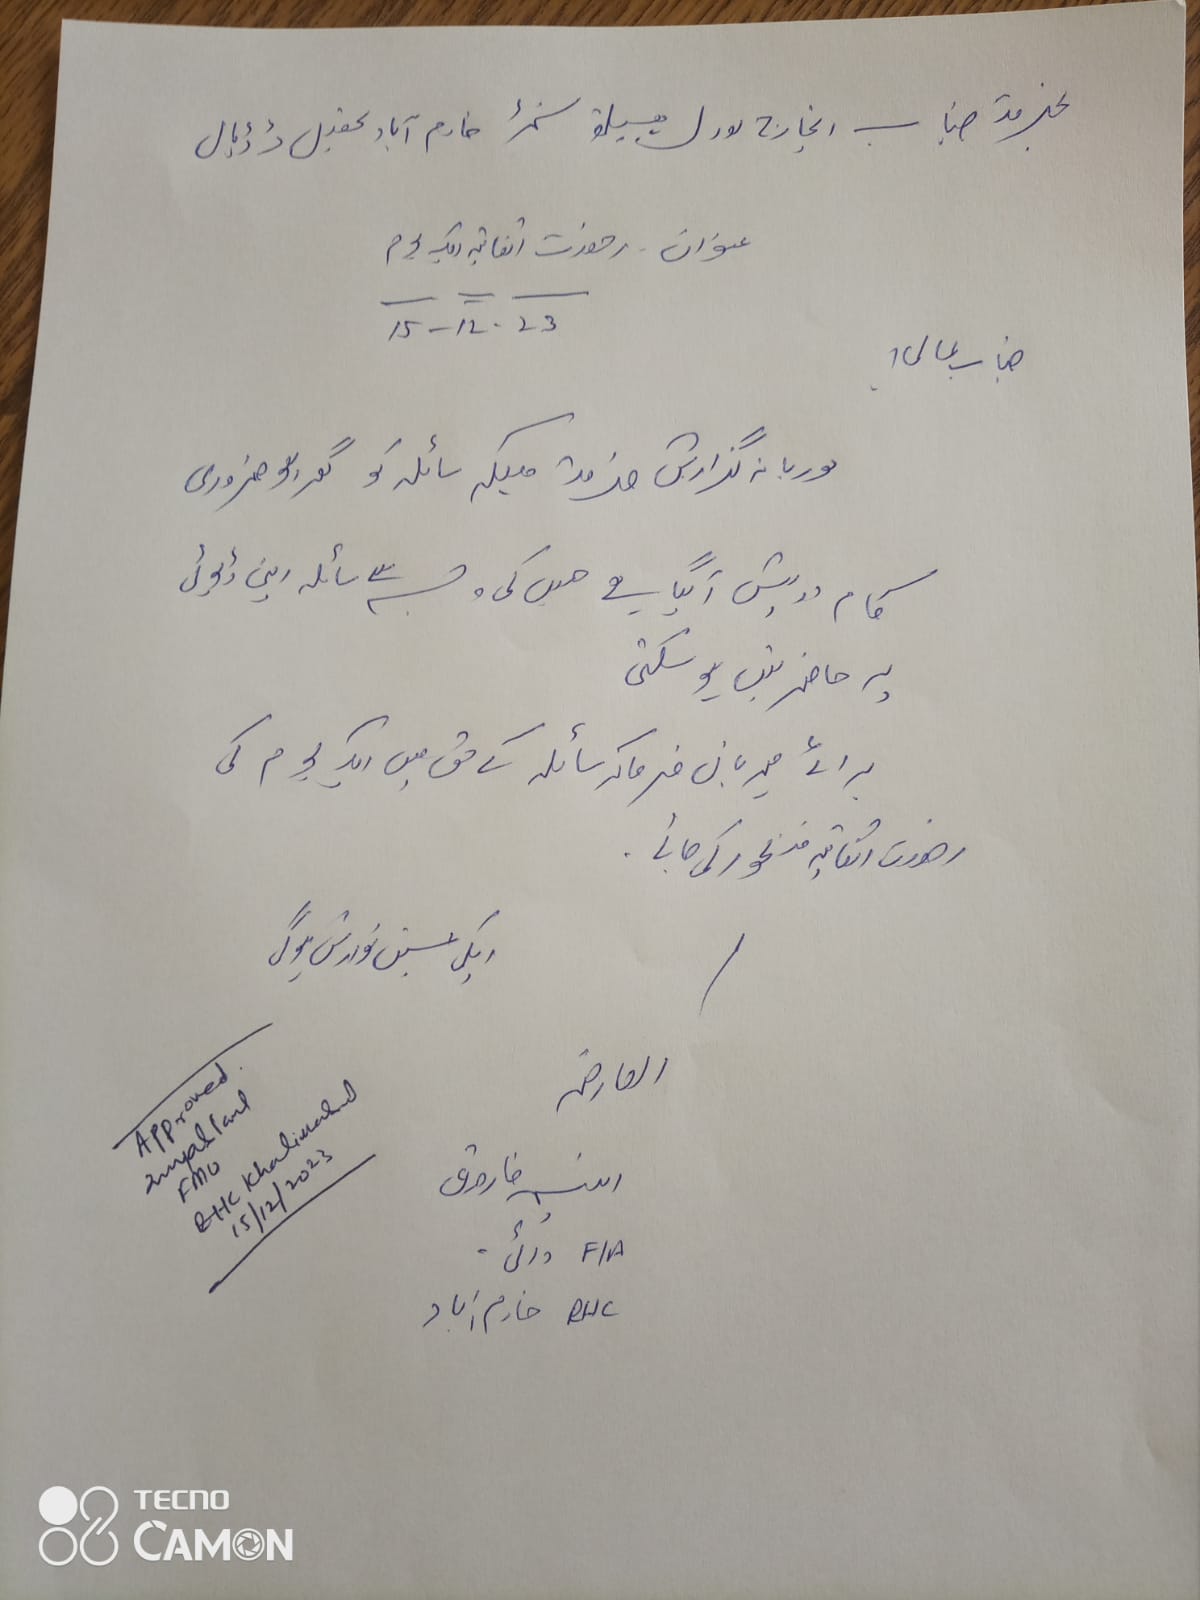 بخدمت جناب انچارج رورل ہیلتھ سنٹر خادم آباد تحصیل ڈڈیال
عنوان۔ رخصت اتفاقیہ ایک یوم
15-12-23
جناب عالی!
مودبانہ گزارش خدمت ہیکہ سائلہ کو گھریلو ضروری
کام درپیش آگیا ہے جس کی وجہ سے سائلہ اپنی ڈیوٹی
پر حاضر نہیں ہو سکتی
برائے مہربانی فرما کر سائلہ کے حق میں ایک یوم کی
رخصت اتفاقیہ منظور کی جائے۔
آپکی عین نوازش ہوگی
العارض
فاروق
FMA دائی
RHC خادم آباد
Approved.
FMO
RHC Khadimabad
15/12/2023
TECNO
CAMON